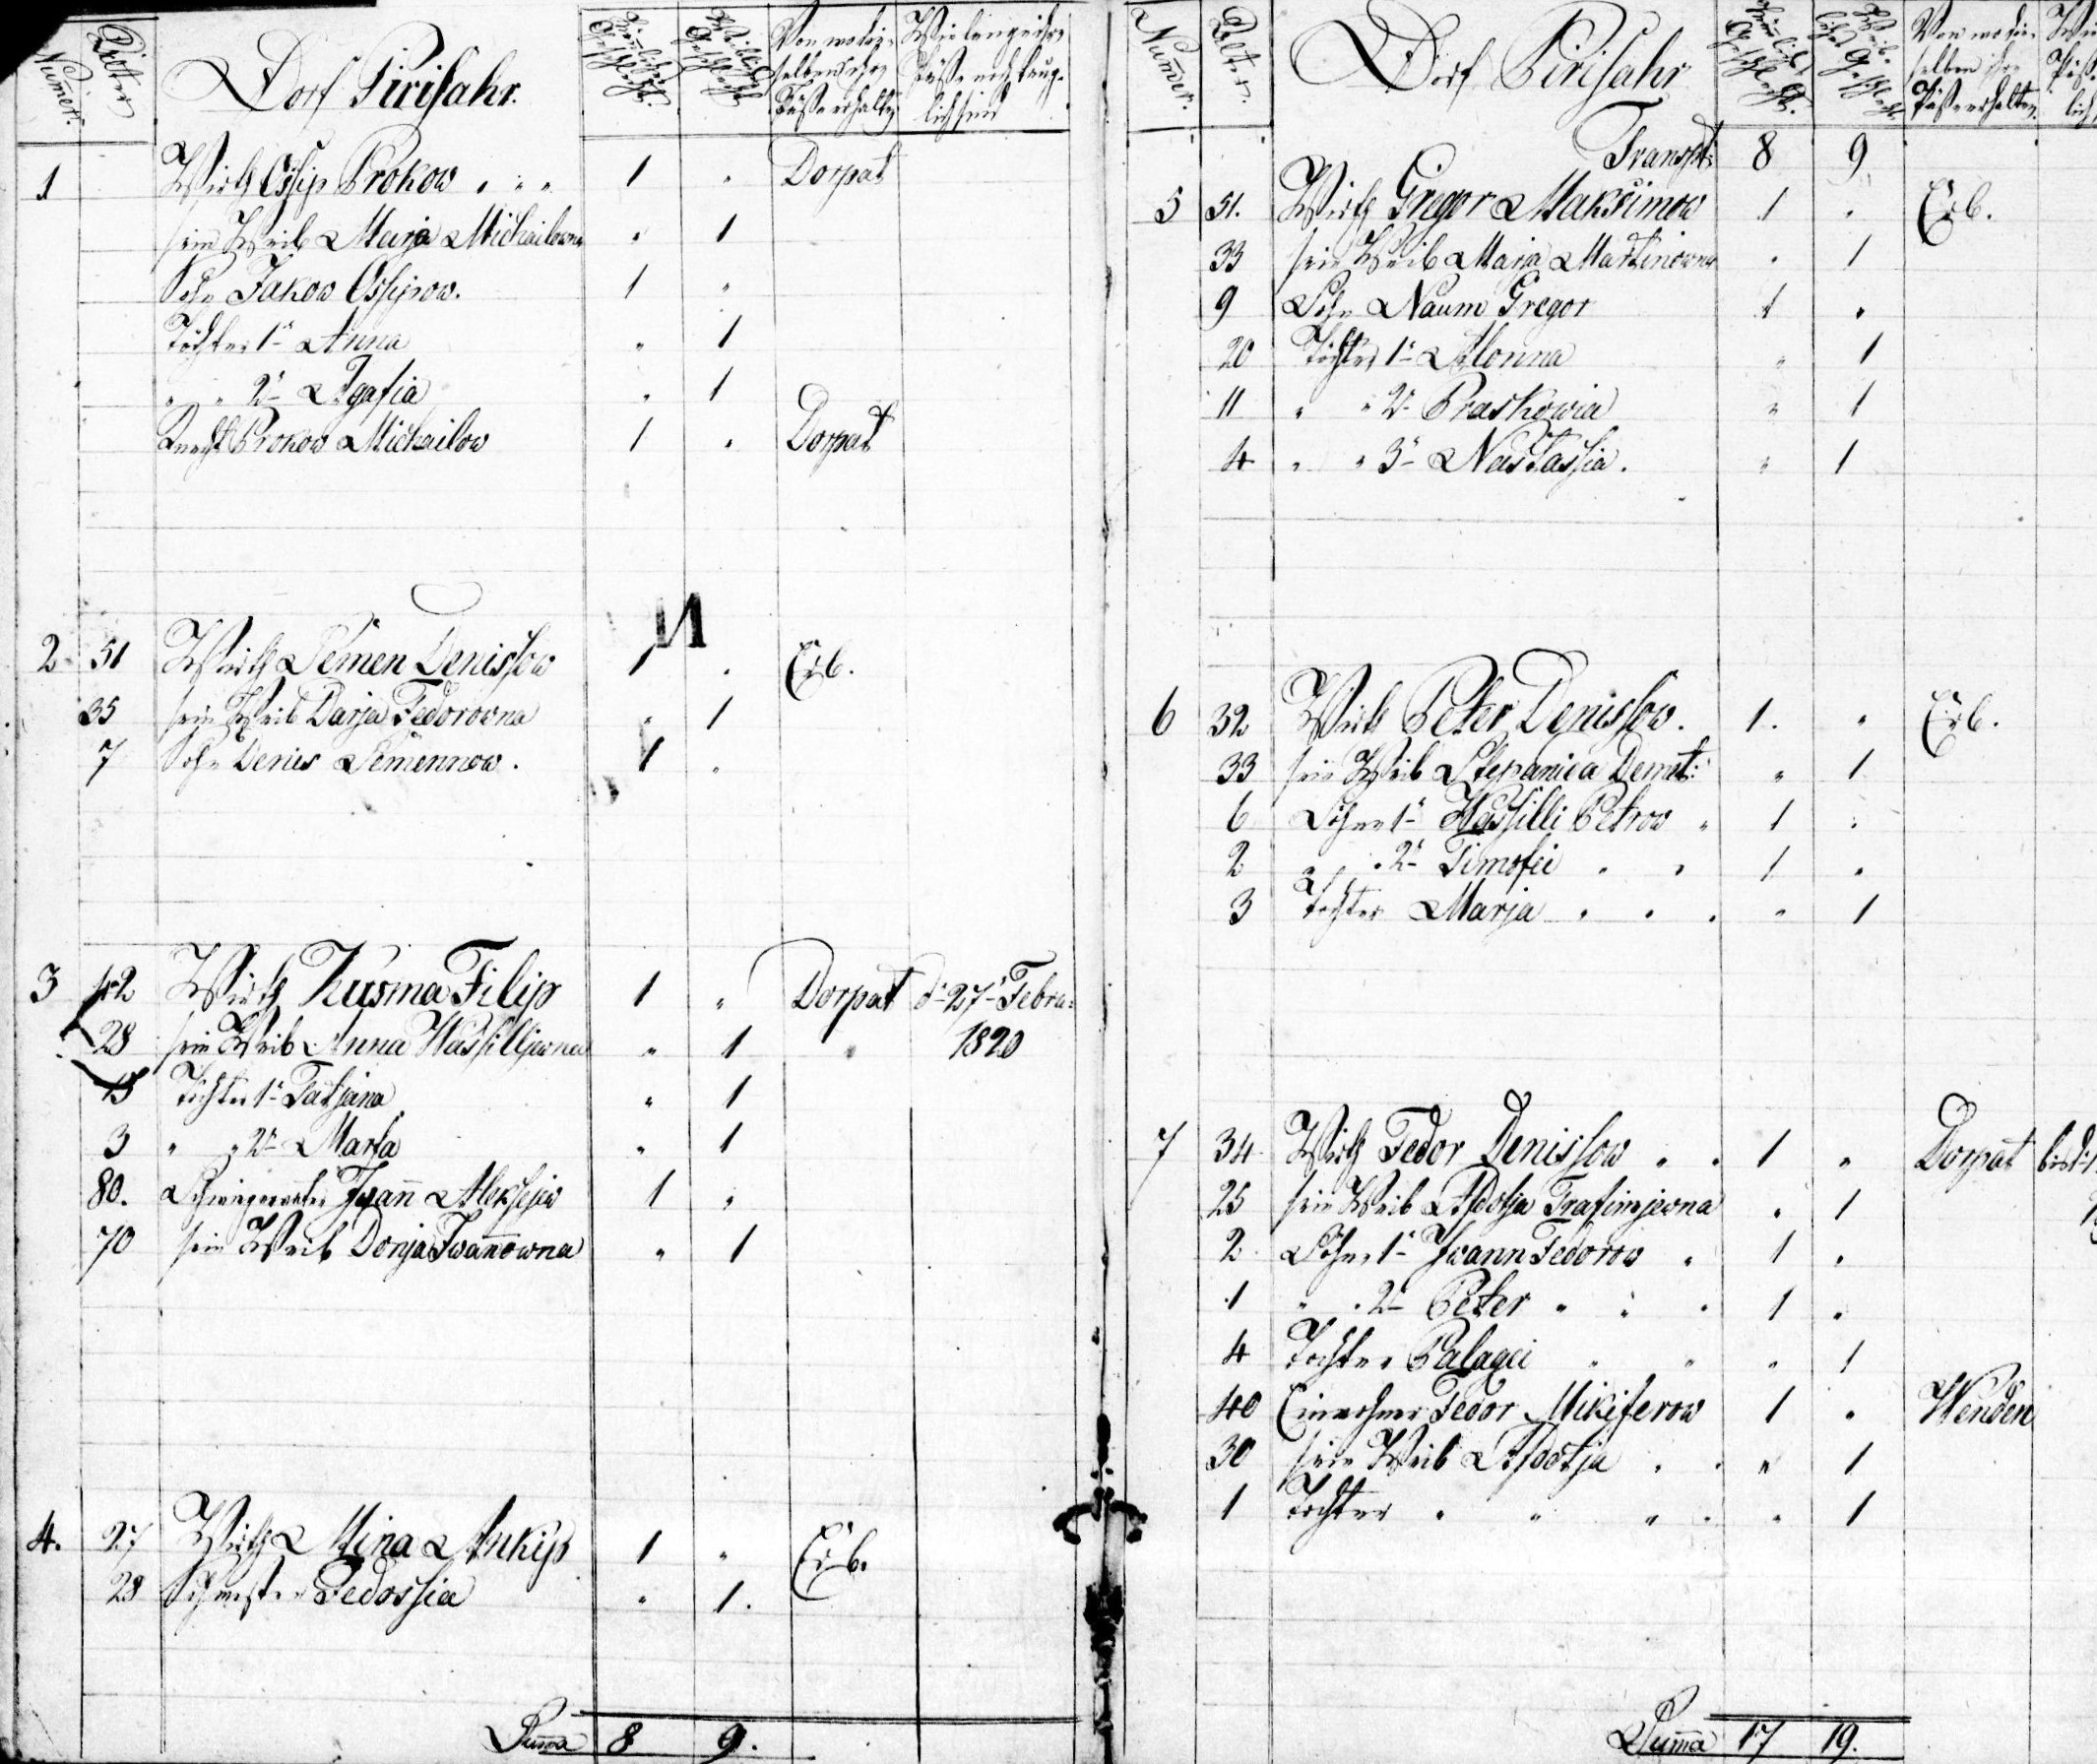 Numer.
Alter
Dorf Pirisahr.
Männliches Geschlecht.
Weibliches Geschlecht
Von wo dieselben ihre Päße erhalten
Wie lange ihre Päße noch tauglich sind
1 Wirth Ossip Prokow " " " 1 " Dorpat
sein Weib Marja Michailowna " 1
Sohn Jakow Ossipow. 1 "
Töchter 1- Anna " 1
" " 2- Agafia " 1
Knecht Prokow Michailow 1 " Dorpat
2 51 Wirth Semen Denissow 1 " Erb.
35 sein Weib Darja Fedorowna " 1
7 Sohn Denis Semennow. 1 "
3 42 Wirth Kusma Filip 1 " Dorpat d- 27- Febra:
28 sein Weib Anna Wassilljewna " 1 " 1820
13 Töchter 1- Tatjana " 1
3 " " 2- Marfa " 1
80. Schwiegervater Iwan̄ Aleksejew 1 "
70 sein Weib Donja Iwan̄owna " 1
4. 27 Wirth Mina Ankip 1 " Erb.
28 Schwester Fedossia " 1.
Sum̄a 8 9.
Num̄er.
Alter.
Dorf Pirisahr
Männliches Geschlecht.
Weibliches Geschlecht.
Von wo dieselben ihre Päße erhalten.
Transpt: 8 9
5 51. Wirth Gregor Maksimow 1 " Erb.
33 sein Weib Marja Martinowna " 1
9 Sohn Naum Gregor 1 "
20 Töchter 1- Alonna " 1
11 " " 2- Praskowia " 1
4 " " 3- Nastassia. " 1
6 32 Wirth Peter Denissow. 1. " Erb.
33 sein Weib Stepanica Demet: " 1
6 Söhne 1- Wassilli Petrow " 1 "
2 " " 2- Timofei " " 1 "
3 Tochter Marja " " " " 1
7 34 Wirth Fedor Denissow " " 1 " Dorpat bis d-
25 sein Weib Afdotja Trafimjewna " 1
2 Söhne 1- Iwann Fedorow " 1 "
1 " " 2- Peter " " " 1 "
4 Tochter Palagei " " " 1
40 Einwohner Fedor Mikiferow 1 " Wenden
30 sein Weib Afdotja " " " 1
1 Tochter " " " " " 1
Sum̄a 17 19.